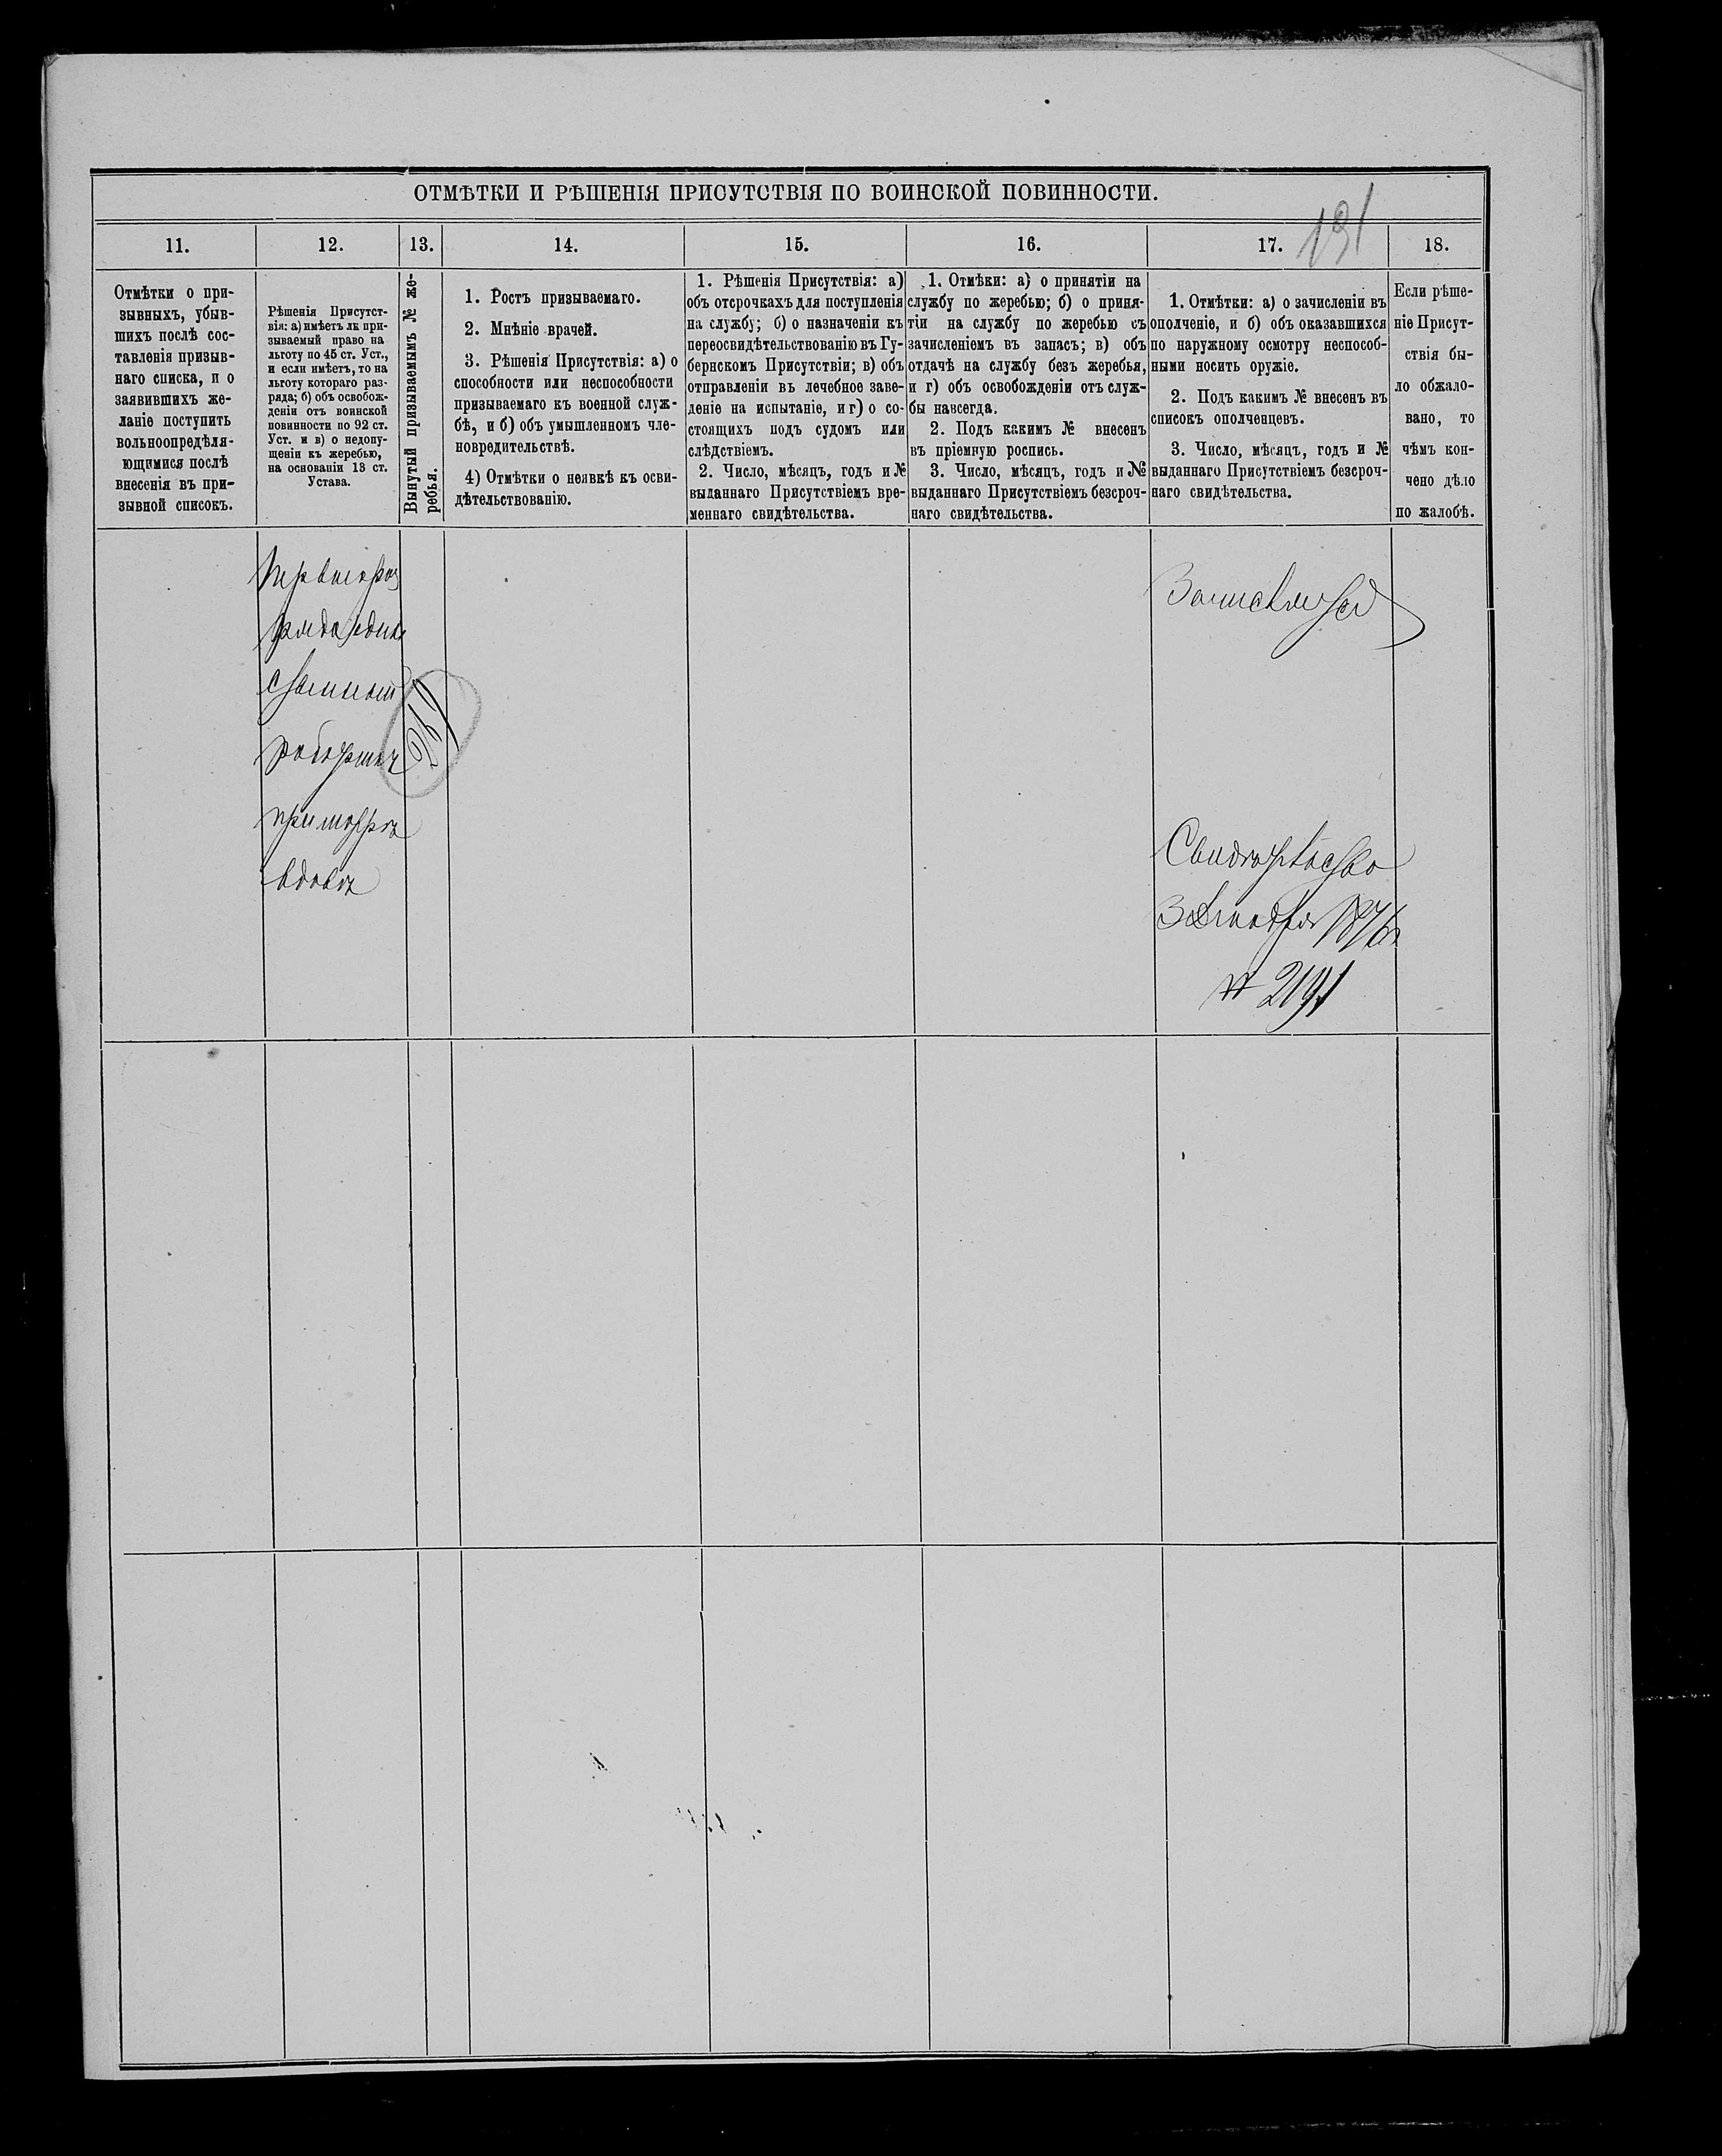 ОТМѢТКИ И РѢШЕНІЯ ПРИСУТСТВІЯ ПО ВОИНСКОЙ ПОВИННОСТИ.
191
11.
12.
13.
14.
15.
16.
17.
18.
Отмѣтки о при-
зывныхъ, убыв-
шихъ послѣ сос-
тавленія призыв-
наго списка, и о
заявившихъ же-
ланіе поступить
вольноопредѣля-
ющимися послѣ
внесенія въ при-
зывной списокъ.
Рѣшенія Присутст-
вія: а) имѣетъ лк при-
зываемый право на
льготу по 45 ст. Уст.,
и если имѣетъ, то на
льготу котораго раз-
ряда; б) объ освобож-
деніи отъ воинской
повинности по 92 ст.
Уст. и в) о недопу-
щеніи къ жеребью,
на основаніи 13 ст.
Устава.
Вынутый призываемымъ № же-
ребья.
1. Ростъ призываемаго.
2. Мнѣніе врачей.
3. Рѣшенія Присутствія: а) о
способности или неспособности
призываемаго къ военной служ-
бѣ, и б) объ умышленномъ чле-
новредительствѣ.
4) Отмѣтки о неявкѣ къ осви-
дѣтельствованію.
1. Рѣшенія Присутствія: а)
объ отсрочкахъ для поступленія
на службу; б) о назначеніи къ
переосвидѣтельствованію въ Гу-
бернскомъ Присутствіи; в) объ
отправленіи въ лечебное заве-
деніе на испытаніе, и г) о со-
стоящихъ подъ судомъ или
слѣдствіемъ.
2. Число, мѣсяцъ, годъ и №
выданнаго Присутствіемъ вре-
меннаго свидѣтельства.
1. Отмѣки: а) о принятіи на
службу по жеребью; б) о приня-
тіи на службу по жеребью съ
зачисленіемъ въ запасъ; в) объ
отдачѣ на службу безъ жеребья,
и г) объ освобожденіи отъ служ-
бы навсегда.
2. Подъ какимъ № внесенъ
въ пріемную роспись.
3. Число, мѣсяцъ, годъ и №
выданнаго Присутствіемъ безсроч-
наго свидѣтельства.
1. Отмѣтки: а) о зачисленіи въ
ополченіе, и б) объ оказавшихся
по наружному осмотру неспособ-
ными носить оружіе.
2. Подъ какимъ № внесенъ въ
списокъ ополченцевъ.
3. Число, мѣсяцъ, годъ и №
выданнаго Присутствіемъ безсроч-
наго свидѣтельства.
Если рѣше-
ніе Присут-
ствія бы-
ло обжало-
вано, то
чѣмъ кон-
чено дѣло
по жалобѣ.
при матери
вдовѣ
Свидетельство
№ 2191